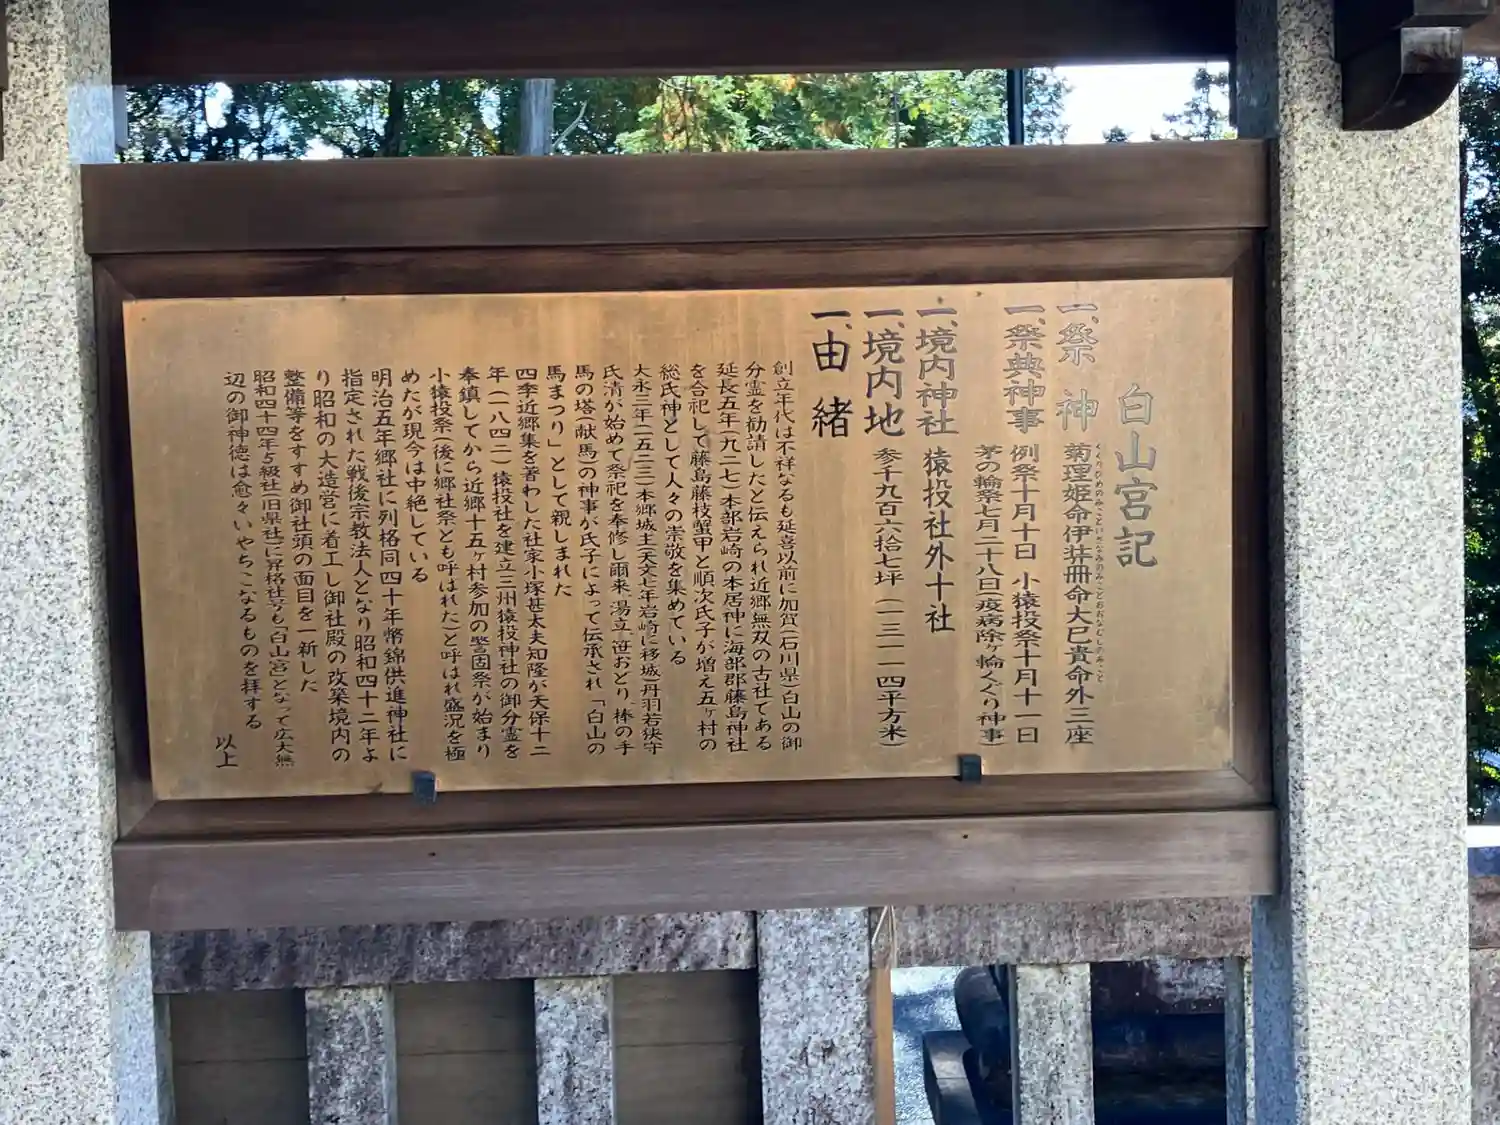 白山宮記
一、祭神 菊理姫命伊弉冊命大巳貴命外三座
くくりひめのみこといざなみのみことおおなむちのみこと
一、祭典神事 例祭十月十日 小猿投祭十月十一日
茅の輪祭七月二十八日(疫病除ケ輪くぐり神事)
一、境内神社 猿投社外十社
一、境内地 参千九百六拾七坪(一三一一四平方米)
一、由緒
創立年代は不祥なるも延喜以前に加賀(石川県)白山の御
分霊を勧請したと伝えられ近郷無双の古社である
延長五年(九二七)本部岩崎の本居神に海部郡藤島神社
を合祀して藤島藤枝蟹甲と順次氏子が増え五ヶ村の
総氏神として人々の崇敬を集めている
大永三年(一五二三)本郷城主(天文七年岩崎に移城)丹羽若狭守
氏清が始めて祭祀を奉修し爾来、湯立、笹おどり、棒の手
馬の塔(献馬)の神事が氏子によって伝承され「白山の
馬まつり」として親しまれた
四季近郷集を著わした社家小塚甚太夫知隆が天保十二
年(一八四一)猿投社を建立三州猿投神社の御分霊を
奉鎮してから近郷十五ヶ村参加の警固祭が始まり
小猿投祭(後に郷社祭とも呼ばれた)と呼ばれ盛況を極
めたが現今は中絶している
明治五年郷社に列格同四十年幣錦供進神社に
指定された戦後宗教法人となり昭和四十二年よ
り昭和の大造営に着工し御社殿の改築境内の
整備等をすすめ御社頭の面目を一新した
昭和四十四年5級社(旧県社)に昇格社号も「白山宮」となって広大無
辺の御神徳は愈々いやちこなるものを拝する
以上